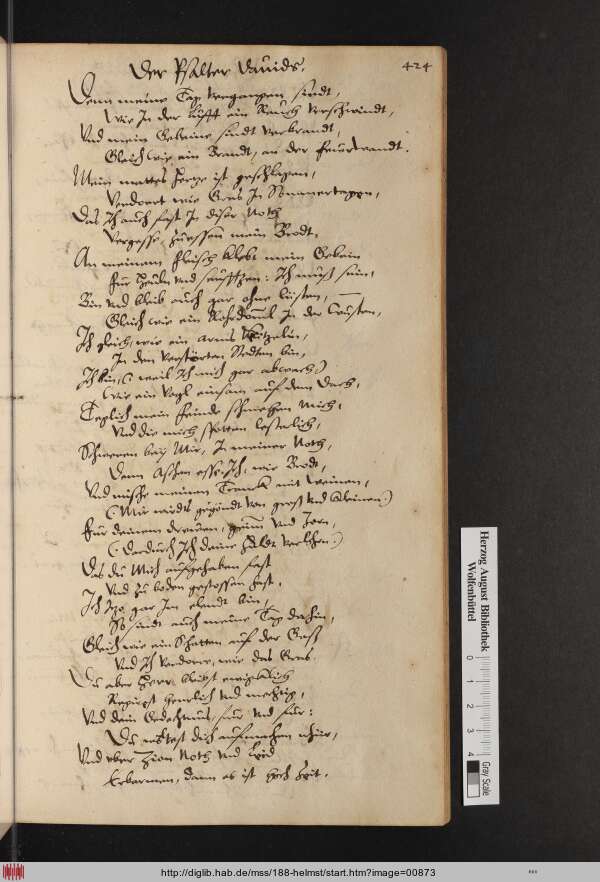 Der Psalter Dauids.
424
Denn meine Tag vergangen sindt,
Wie In der Lufft ein Rauch verschwindt,
Vnd mein Gebeine sindt verbrandt,
Gleich wie ein Brandt, an der feurwandt.
Mein mattes Hertze ist geschlagen,
Verdorrt wie Gras In Sommertagen,
Das Ich auch fast In diser Noth
Vergesse zu essen mein Brodt.
An meinem fleisch klebt mein Gebein
für heuln vnd seufftzen: Ich muß sein,
Bin vnd bleib auch gar ohne lüsten,
Gleich wie ein Rohrdomel In der Wüsten,
Ich gleich, wie ein arms Kützelin,
In den verstörten Stedten bin,
Ich bin, (: weil Ich mich gar abwach:)
Wie ein Vogl einsam auf dem Dach,
Teglich mein feinde schmehen mich,
Vnd die mich spotten lesterlich,
Schweren bey Mir, In meiner Noth,
Denn Aschen esse Ich, wie Brodt,
Vnd mische meinen Tranck mit weinen,
(: Mir wirdts gegöndt von groß vnd kleinen:)
für deinem drewen, grim vnd Zorn,
(: Dardurch Ich deine Huldt verlohrn:)
Das du Mich aufgehaben hast
Vnd zu boden gestossen hast.
Ich Itzo gar Im elendt bin,
Es sindt auch meine Tag dahin,
Gleich wie ein Schatten auf der Gaß
Vnd Ich verdorre, wie das Gras.
Du aber Herr bleibst ewiglich
Regirst herrlich vnd mechtig,
Vnd dein Gedechtnus, für vnd für:
Du wöllest dich aufmachen schier,
Vnd vber Zion Noth vnd Leid
Erbarmen, dann es ist hoch Zeit.
Herzog August Bibliothek
Wolfenbüttel
0 1 2 3 4
Gray Scale
http://diglib.hab.de/mss/188-helmst/start.htm?image=00873